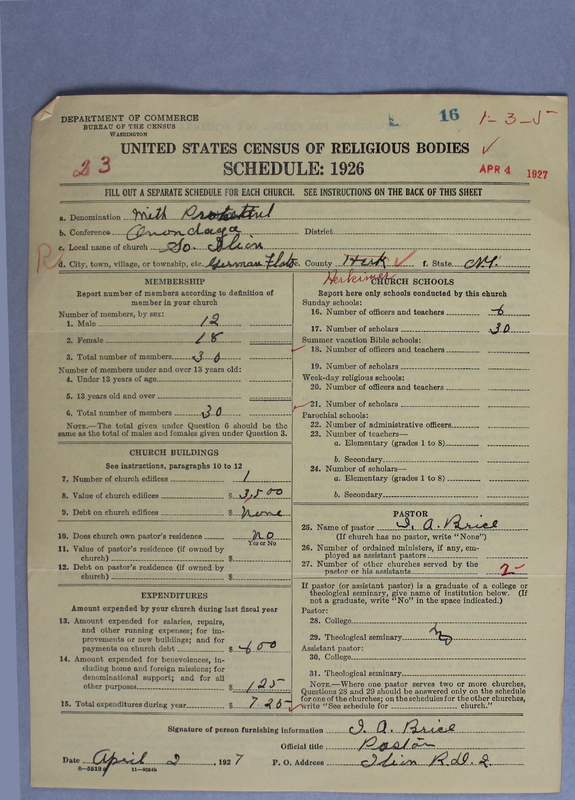 DEPARTMENT OF COMMERCE
BUREAU OF THE CENSUS
WASHINGTON
16 1-3-5
UNITED STATES CENSUS OF RELIGIOUS BODIES
23
SCHEDULE: 1926
APR 4 1927
FILL OUT A SEPARATE SCHEDULE FOR EACH CHURCH. SEE INSTRUCTIONS ON THE BACK OF THIS SHEET
a. Denomination Meth
b. Conference Onondaga District
c. Local name of church So. Ilion
R
d. City, town, village, or township, etc. German Flats e. County Herk f. State N.Y.
Herkimer
MEMBERSHIP
Report number of members according to definition of
member in your church
Number of members, by sex:
1. Male 12
2. Female 18
3. Total number of members 30
Number of members under and over 13 years old:
4. Under 13 years of age
5. 13 years old and over
6. Total number of members 30
NOTE.—The total given under Question 6 should be the
same as the total of males and females given under Question 3.
CHURCH BUILDINGS
See instructions, paragraphs 10 to 12
7. Number of church edifices 1
8. Value of church edifices $ 3,500
9. Debt on church edifices $ None
10. Does church own pastor's residence No
Yes or No
11. Value of pastor's residence (if owned by
church) $
12. Debt on pastor's residence (if owned by
church) $
EXPENDITURES
Amount expended by your church during last fiscal year
13. Amount expended for salaries, repairs,
and other running expenses; for im-
provements or new buildings; and for
payments on church debt $ 600
14. Amount expended for benevolences, in-
cluding home and foreign missions; for
denominational support; and for all
other purposes $ 125
15. Total expenditures during year $ 725
CHURCH SCHOOLS
Report here only schools conducted by this church
Sunday schools:
16. Number of officers and teachers 6
17. Number of scholars 30
Summer vacation Bible schools:
18. Number of officers and teachers
19. Number of scholars
Week-day religious schools:
20. Number of officers and teachers
21. Number of scholars
Parochial schools:
22. Number of administrative officers
23. Number of teachers—
a. Elementary (grades 1 to 8)
b. Secondary
24. Number of scholars—
a. Elementary (grades 1 to 8)
b. Secondary
PASTOR
25. Name of pastor I. A. Brice
(If church has no pastor, write "None")
26. Number of ordained ministers, if any, em-
ployed as assistant pastors
27. Number of other churches served by the
pastor or his assistants 2
If pastor (or assistant pastor) is a graduate of a college or
theological seminary, give name of institution below. (If
not a graduate, write "No" in the space indicated.)
Pastor:
28. College
29. Theological seminary No
Assistant pastor:
30. College
31. Theological seminary
NOTE.—Where one pastor serves two or more churches,
Questions 28 and 29 should be answered only on the schedule
for one of the churches; on the schedules for the other churches,
write "See schedule for church."
Signature of person furnishing information I. A. Brice
Official title Pastor
Date April 2, 1927 P. O. Address Ilion R.D. 2.